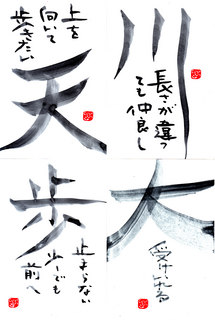 上を
向いて
歩きたい
天
川
長さが違っ
ても仲良し
歩
止まらない
少しでも
前へ
大
受けいれる